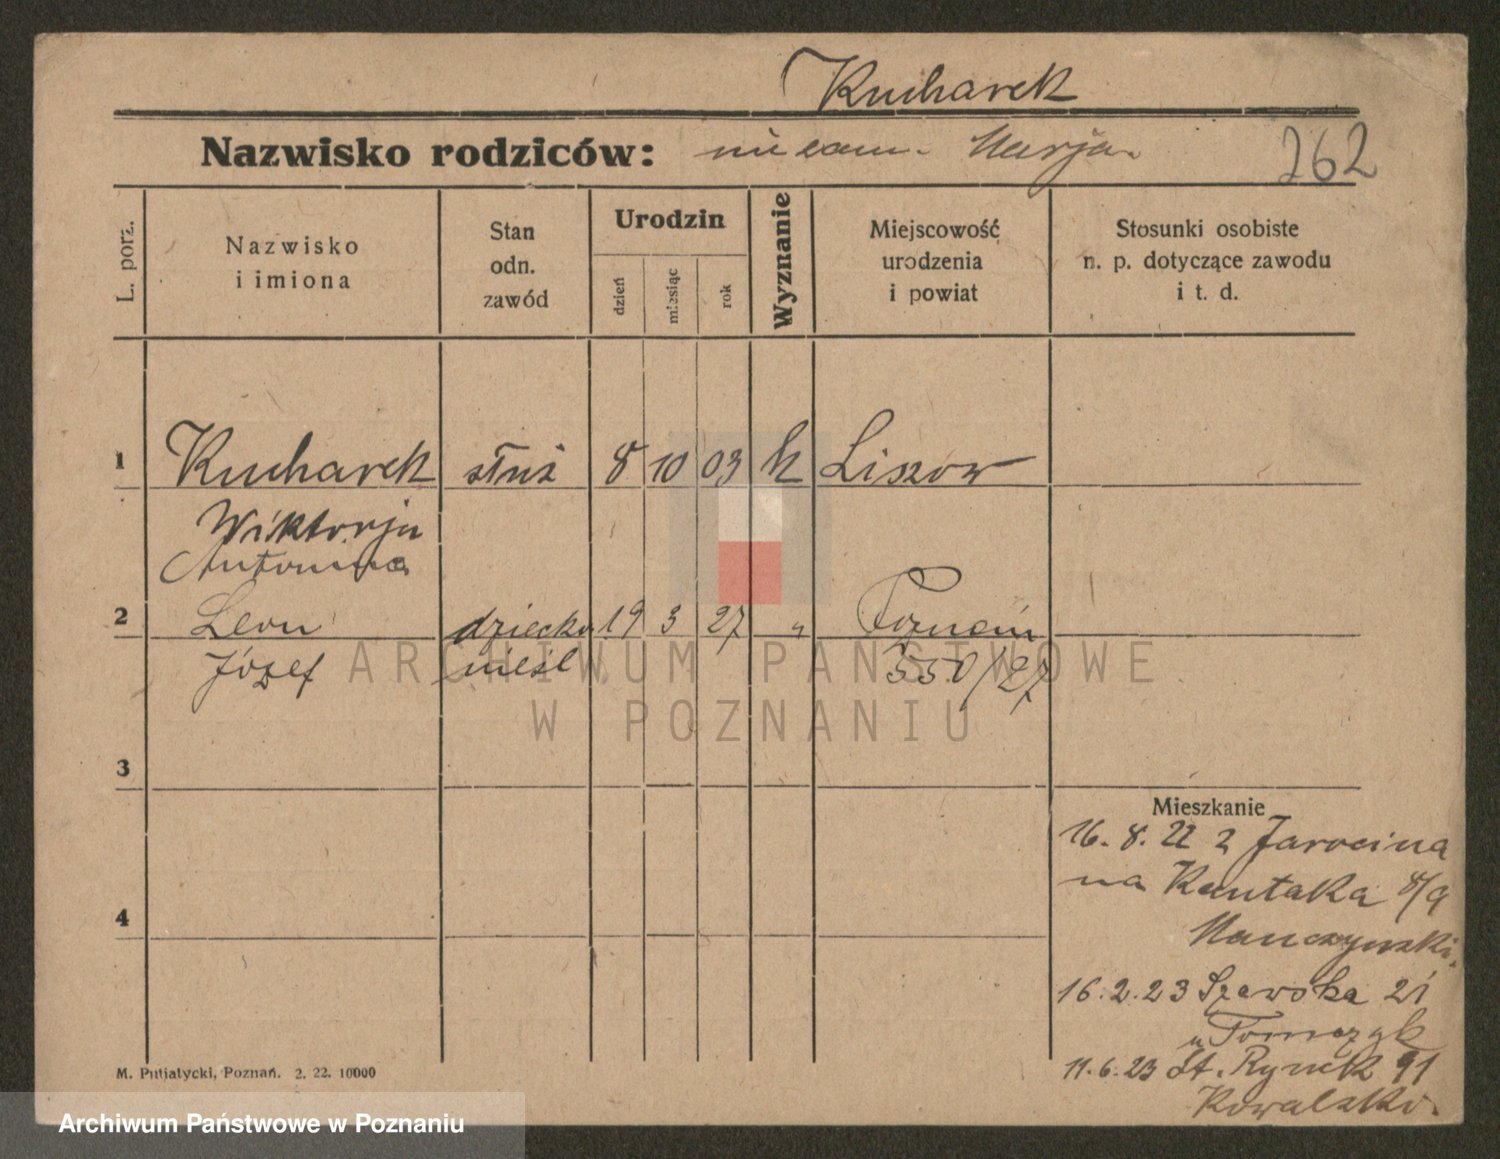 Kucharek
Nazwisko rodziców: niezam. Marja.
262
L. porz.
Nazwisko
i imiona
Stan
odn.
zawód
Urodzin
dzień
miesiąc
rok
Wyznanie
Miejscowość
urodzenia
i powiat
Stosunki osobiste
n. p. dotyczące zawodu
i t. d.
1 Kucharek służ 8 10 03 k Liszów
Wiktorja
Antonina
2 Leon dziecko 19 3 27 " Poznań
Józef nieśl 550/27
ARCHIWUM PAŃSTWOWE
W POZNANIU
3
4
Mieszkanie
16.8.22 z Jarocina
na Kantaka 8/9
16.2.23 Szewska 21
u Tomczyk
11.6.23 St. Rynek 91
M. Putiatycki, Poznań. 2. 22. 10000
Archiwum Państwowe w Poznaniu